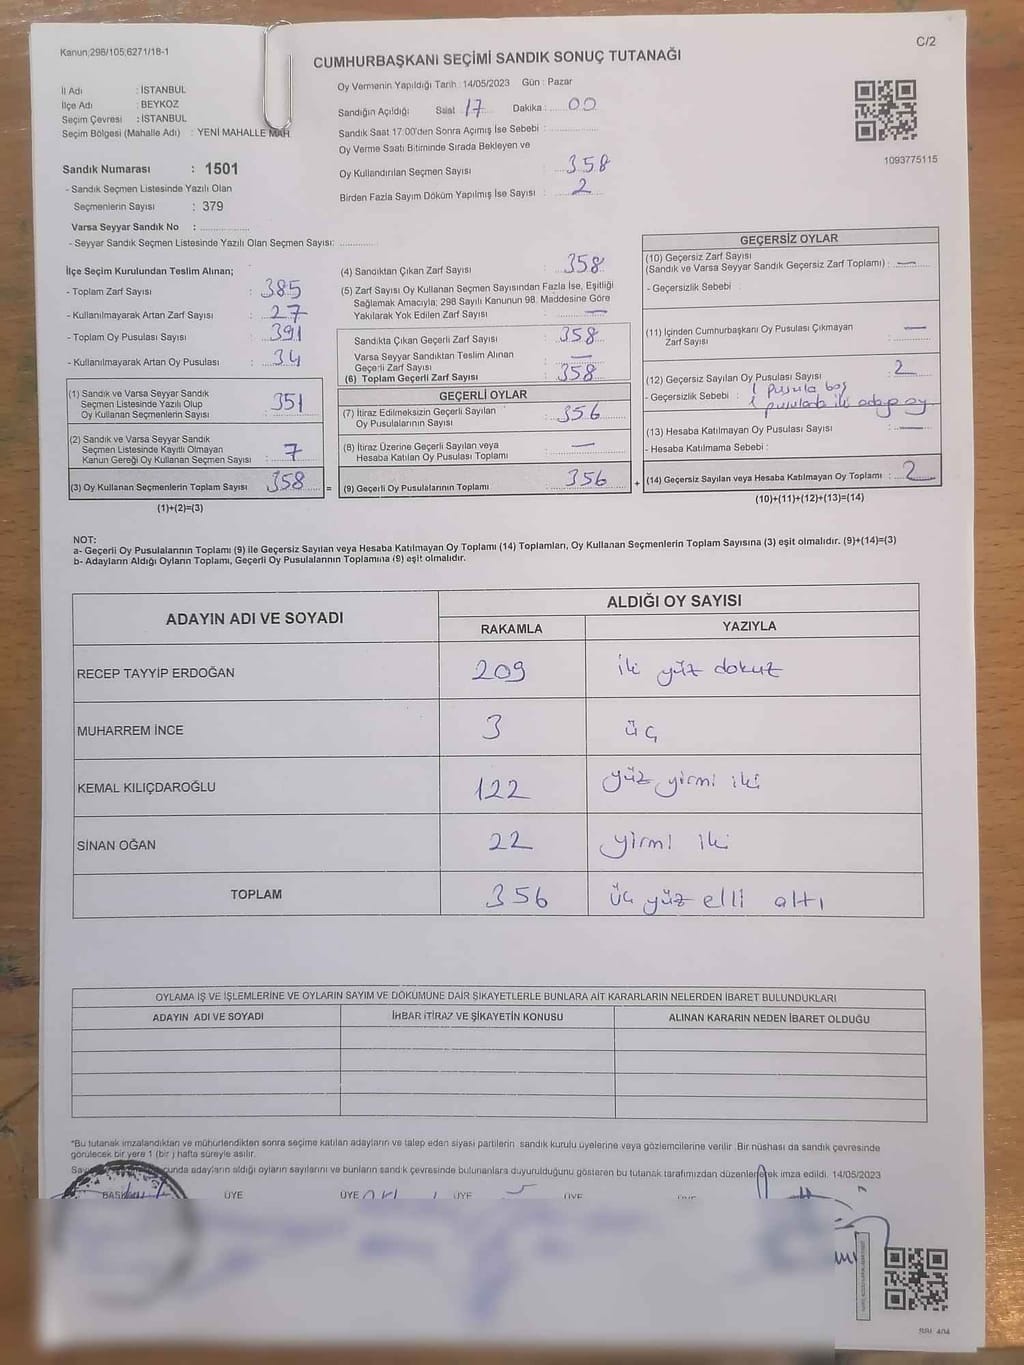 Kanun;298/105;6271/18-1
C/2
CUMHURBAŞKANI SEÇİMİ SANDIK SONUÇ TUTANAĞI
İl Adı : İSTANBUL
İlçe Adı : BEYKOZ
Seçim Çevresi : İSTANBUL
Seçim Bölgesi (Mahalle Adı) : YENİ MAHALLE MAH.
Sandık Numarası : 1501
- Sandık Seçmen Listesinde Yazılı Olan
Seçmenlerin Sayısı : 379
Varsa Seyyar Sandık No :
- Seyyar Sandık Seçmen Listesinde Yazılı Olan Seçmen Sayısı:
Oy Vermenin Yapıldığı Tarih : 14/05/2023 Gün : Pazar
Sandığın Açıldığı Saat 17 Dakika : 00
Sandık Saat 17:00'den Sonra Açımış İse Sebebi :
Oy Verme Saati Bitiminde Sırada Bekleyen ve
Oy Kullandırılan Seçmen Sayısı : 358
Birden Fazla Sayım Döküm Yapılmış İse Sayısı : 2
1093775115
İlçe Seçim Kurulundan Teslim Alınan;
- Toplam Zarf Sayısı : 385
- Kullanılmayarak Artan Zarf Sayısı : 27
- Toplam Oy Pusulası Sayısı : 391
- Kullanılmayarak Artan Oy Pusulası : 34
(1) Sandık ve Varsa Seyyar Sandık
Seçmen Listesinde Yazılı Olup
Oy Kullanan Seçmenlerin Sayısı : 351
(2) Sandık ve Varsa Seyyar Sandık
Seçmen Listesinde Kayıtlı Olmayan
Kanun Gereği Oy Kullanan Seçmen Sayısı : 7
(3) Oy Kullanan Seçmenlerin Toplam Sayısı : 358
(1)+(2)=(3)
(4) Sandıktan Çıkan Zarf Sayısı : 358
(5) Zarf Sayısı Oy Kullanan Seçmen Sayısından Fazla İse, Eşitliği
Sağlamak Amacıyla; 298 Sayılı Kanunun 98. Maddesine Göre
Yakılarak Yok Edilen Zarf Sayısı : —
Sandıkta Çıkan Geçerli Zarf Sayısı : 358
Varsa Seyyar Sandıktan Teslim Alınan
Geçerli Zarf Sayısı : —
(6) Toplam Geçerli Zarf Sayısı : 358
GEÇERLİ OYLAR
(7) İtiraz Edilmeksizin Geçerli Sayılan
Oy Pusulalarının Sayısı : 356
(8) İtiraz Üzerine Geçerli Sayılan veya
Hesaba Katılan Oy Pusulası Toplamı : —
= (9) Geçerli Oy Pusulalarının Toplamı : 356
GEÇERSİZ OYLAR
(10) Geçersiz Zarf Sayısı
(Sandık ve Varsa Seyyar Sandık Geçersiz Zarf Toplamı) : —
- Geçersizlik Sebebi :
(11) İçinden Cumhurbaşkanı Oy Pusulası Çıkmayan
Zarf Sayısı : —
(12) Geçersiz Sayılan Oy Pusulası Sayısı : 2
- Geçersizlik Sebebi : 1 pusula boş
1 pusulada iki adaya oy
(13) Hesaba Katılmayan Oy Pusulası Sayısı : —
- Hesaba Katılmama Sebebi :
+ (14) Geçersiz Sayılan veya Hesaba Katılmayan Oy Toplamı : 2
(10)+(11)+(12)+(13)=(14)
NOT:
a- Geçerli Oy Pusulalarının Toplamı (9) ile Geçersiz Sayılan veya Hesaba Katılmayan Oy Toplamı (14) Toplamları, Oy Kullanan Seçmenlerin Toplam Sayısına (3) eşit olmalıdır. (9)+(14)=(3)
b- Adayların Aldığı Oyların Toplamı, Geçerli Oy Pusulalarının Toplamına (9) eşit olmalıdır.
ADAYIN ADI VE SOYADI
ALDIĞI OY SAYISI
RAKAMLA YAZIYLA
RECEP TAYYİP ERDOĞAN 209 iki yüz dokuz
MUHARREM İNCE 3 üç
KEMAL KILIÇDAROĞLU 122 yüz yirmi iki
SİNAN OĞAN 22 yirmi iki
TOPLAM 356 üç yüz elli altı
OYLAMA İŞ VE İŞLEMLERİNE VE OYLARIN SAYIM VE DÖKÜMÜNE DAİR ŞİKAYETLERLE BUNLARA AİT KARARLARIN NELERDEN İBARET BULUNDUKLARI
ADAYIN ADI VE SOYADI İHBAR İTİRAZ VE ŞİKAYETİN KONUSU ALINAN KARARIN NEDEN İBARET OLDUĞU
*Bu tutanak imzalandıktan ve mühürlendikten sonra seçime katılan adayların ve talep eden siyasi partilerin sandık kurulu üyelerine veya gözlemcilerine verilir. Bir nüshası da sandık çevresinde
görülecek bir yere 1 (bir ) hafta süreyle asılır.
adayların aldığı oyların sayılarını ve bunların sandık çevresinde bulunanlara duyurulduğunu gösteren bu tutanak tarafımızdan düzenlenerek imza edildi. 14/05/2023
BAŞKAN ÜYE ÜYE ÜYE ÜYE ÜYE